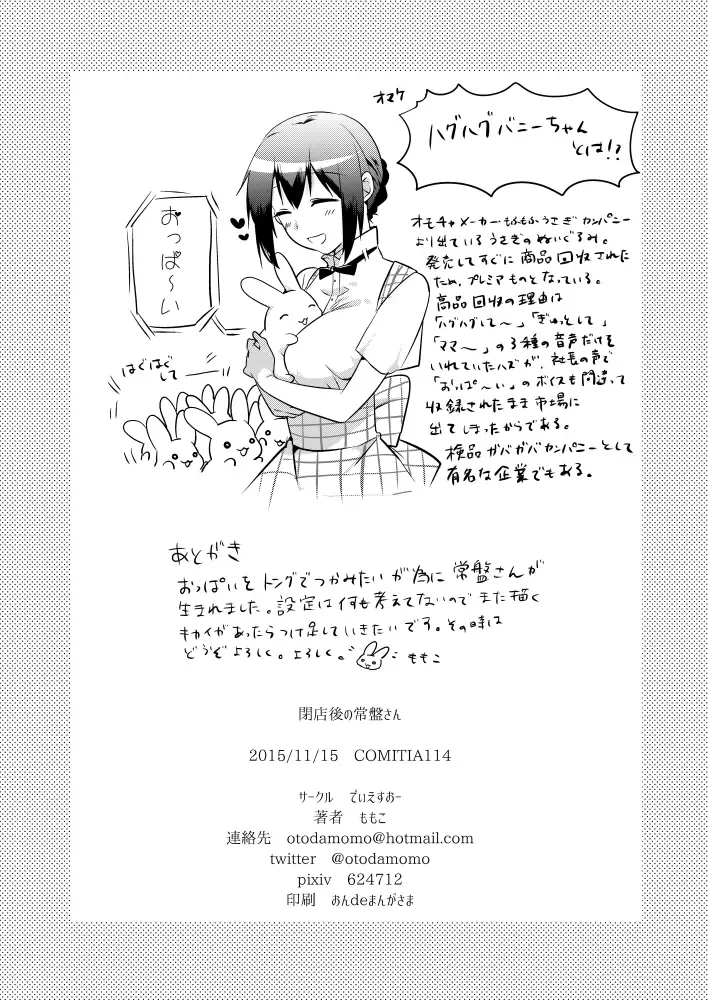 オマケ
ハグハグバニーちゃん
とは!?
オモチャメーカー・もふもふうさぎカンパニー
より出ているうさぎのぬいぐるみ。
発売してすぐに商品回収された
ため、プレミアものとなっている。
商品回収の理由は
「ハグハグして〜」「ぎゅっとして」
「ママ〜」の3種の音声だけを
いれていたハズが、社長の声で
「おっぱ〜い」のボイスも間違って
収録されたまま市場に
出てしまったからである。
検品ガバガバカンパニーとして
有名な企業でもある。
おっぱ〜い
はぐはぐ
して――
あとがき
おっぱいをトングでつかみたいが為に常盤さんが
生まれました。設定は何も考えてないのでまた描く
キカイがあったらつけ足していきたいです。その時は
どうぞよろしく。よろしく。
ももこ
閉店後の常盤さん
2015/11/15 COMITIA114
サークル でぃえすおー
著者 ももこ
連絡先 otodamomo@hotmail.com
twitter @otodamomo
pixiv 624712
印刷 おんdeまんがさま